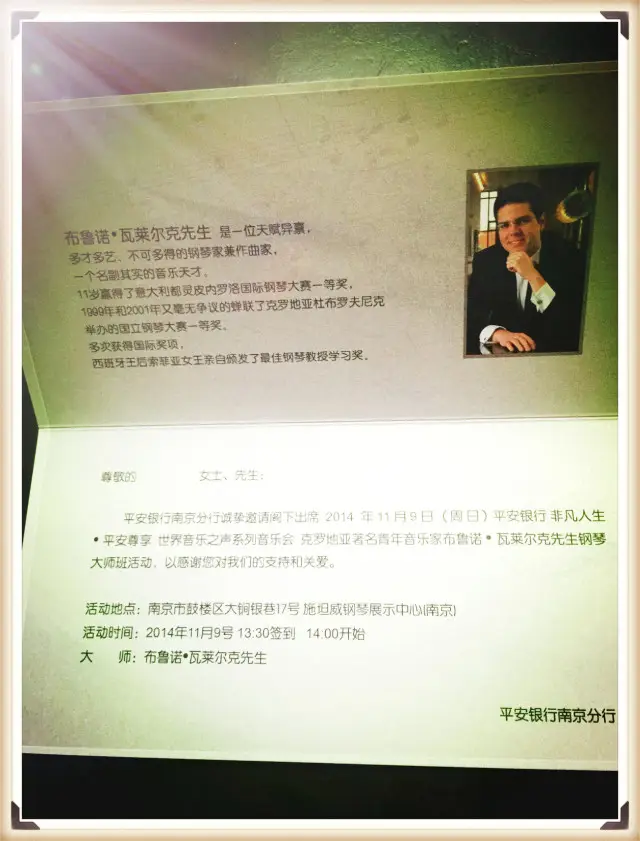 布鲁诺•瓦莱尔克先生 是一位天赋异禀，
多才多艺、不可多得的钢琴家兼作曲家，
一个名副其实的音乐天才。
11岁赢得了意大利都灵皮内罗洛国际钢琴大赛一等奖，
1999年和2001年又毫无争议的蝉联了克罗地亚杜布罗夫尼克
举办的国立钢琴大赛一等奖。
多次获得国际奖项。
西班牙王后索菲亚女王亲自颁发了最佳钢琴教授学习奖。
尊敬的 女士、先生：
平安银行南京分行诚挚邀请阁下出席 2014 年 11 月 9 日（周日）平安银行 非凡人生
•平安尊享 世界音乐之声系列音乐会 克罗地亚著名青年音乐家布鲁诺•瓦莱尔克先生钢琴
大师班活动，以感谢您对我们的支持和关爱。
活动地点：南京市鼓楼区大锏银巷17号 施坦威钢琴展示中心(南京)
活动时间：2014年11月9号 13:30签到 14:00开始
大 师：布鲁诺•瓦莱尔克先生
平安银行南京分行